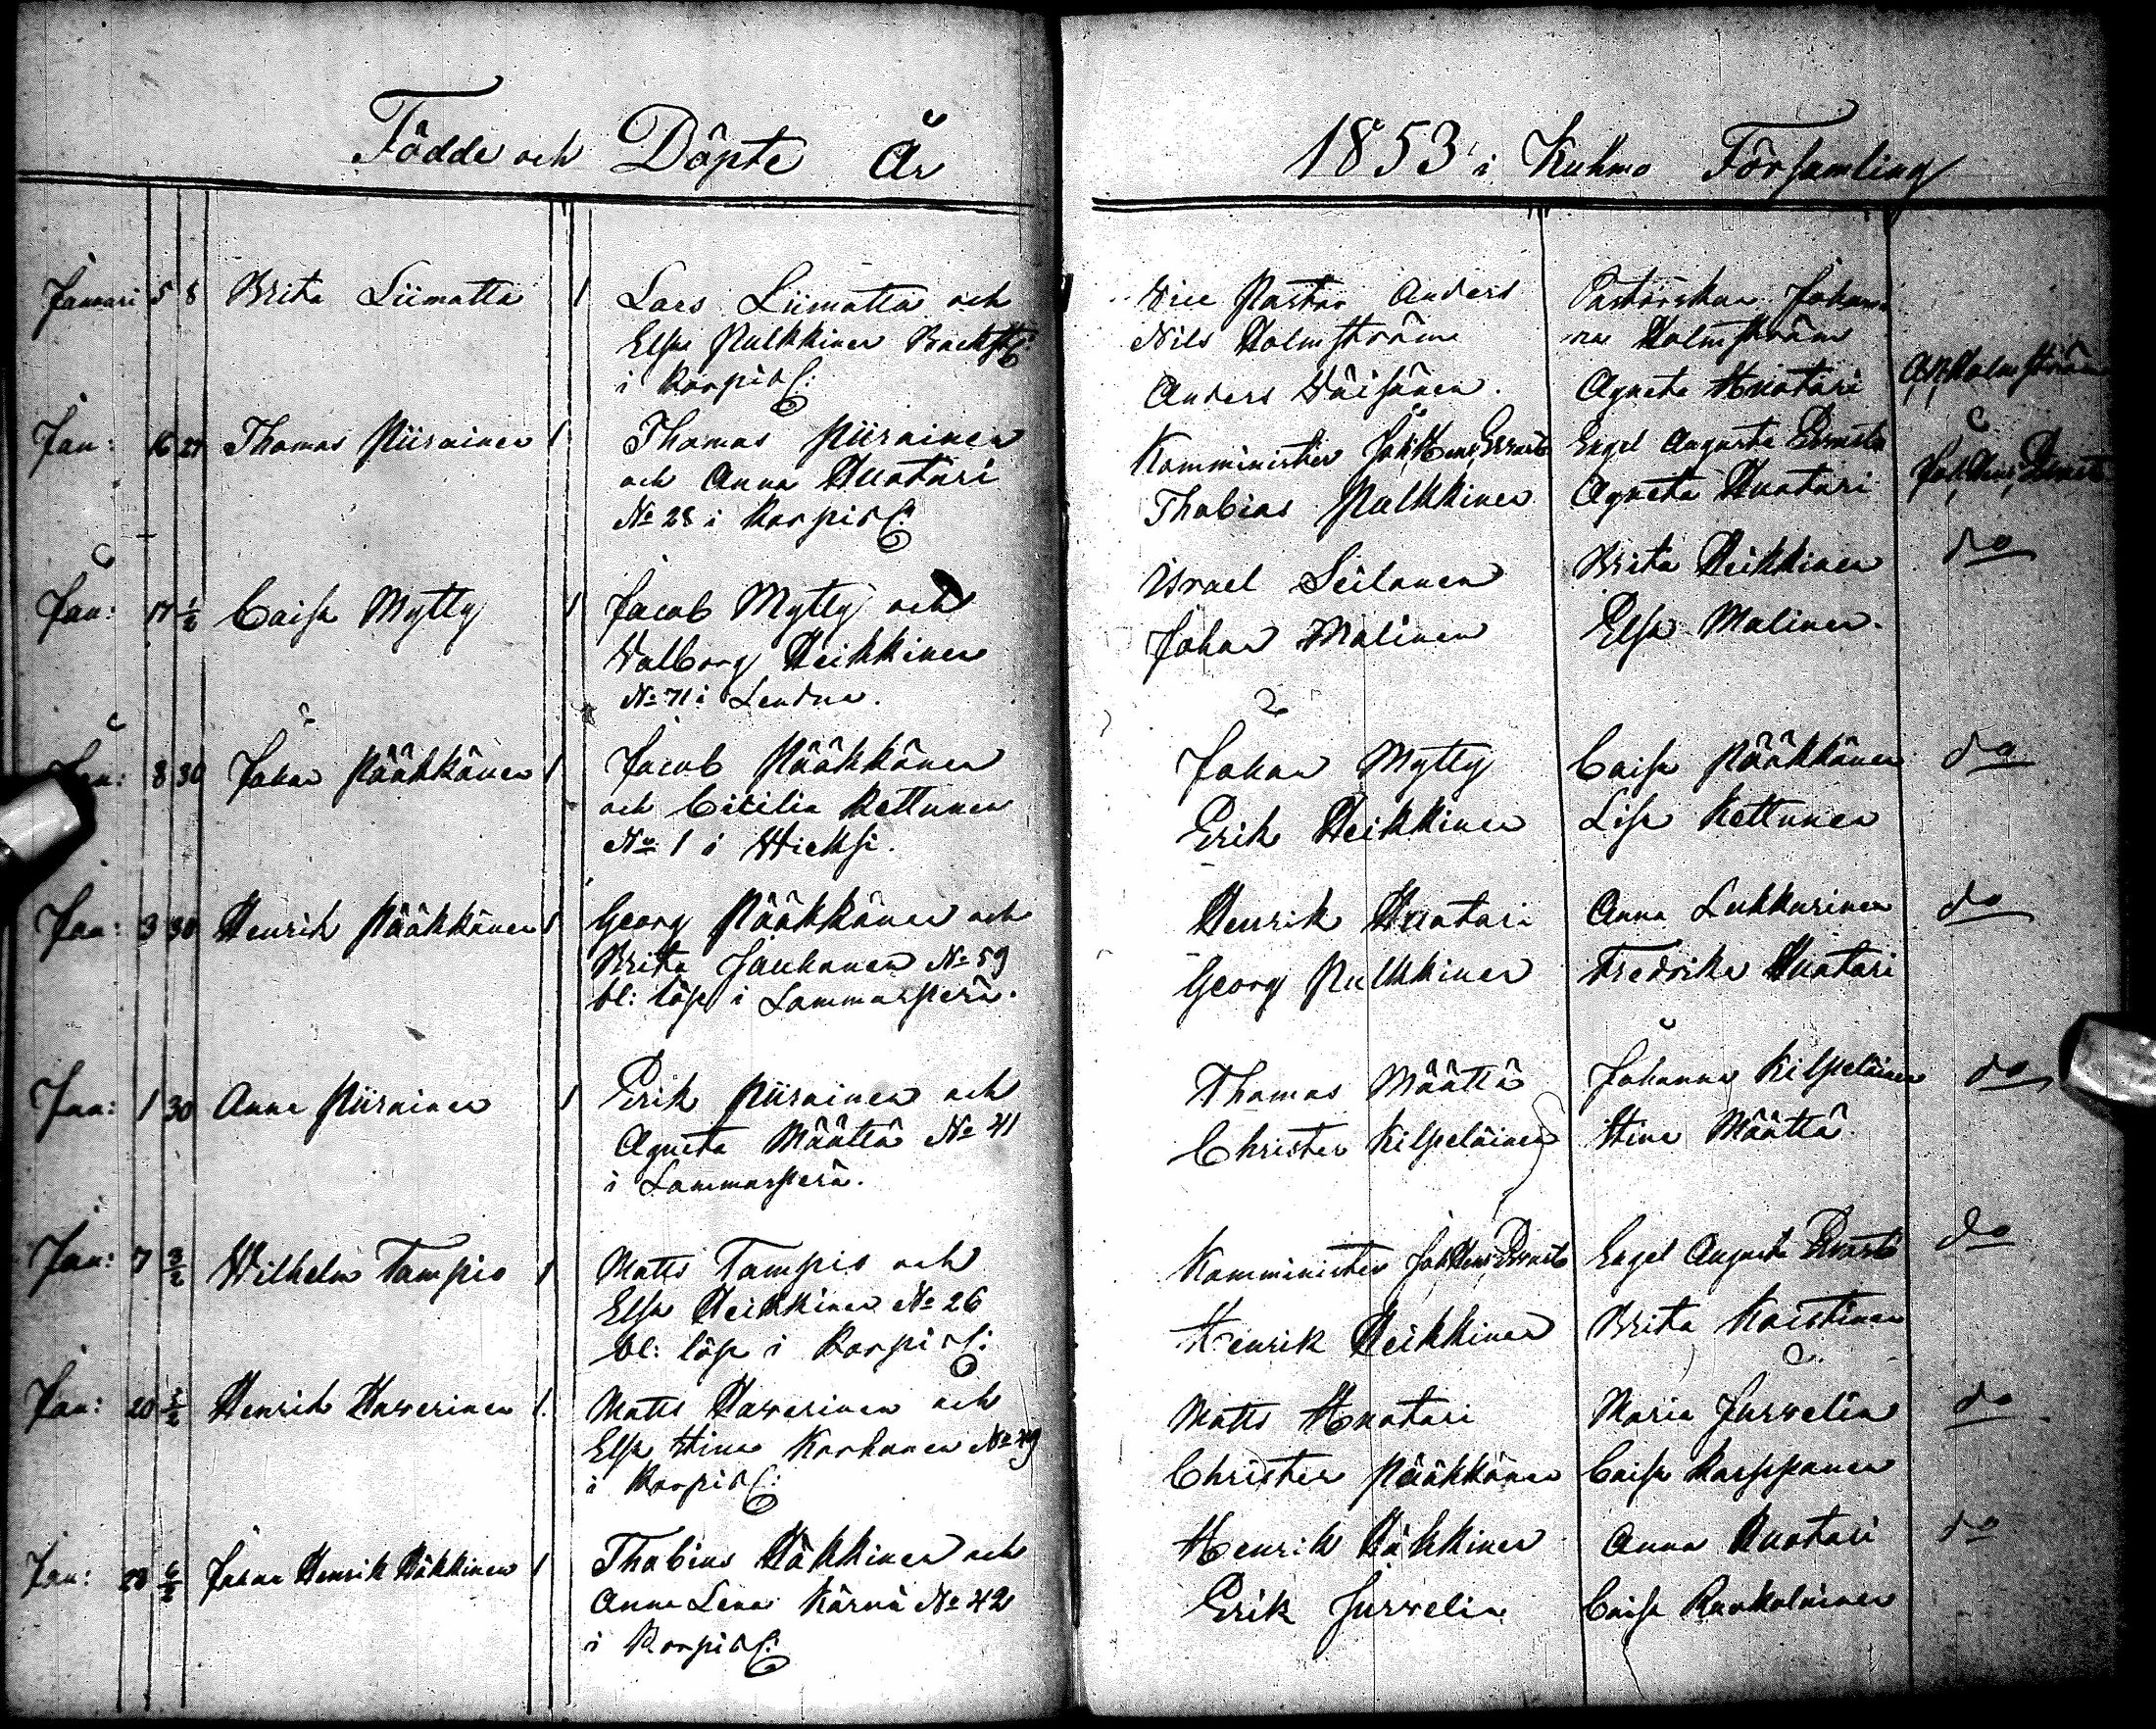 Födde och Döpte År
1853 i Kuhmo Församling
Januari 5 8 Brita Liimatta 1
Lars Liimatta och
Elsa Pulkkinen Backst:
i Korpis:
Vice Pastor Anders
Nils Holmström
Anders Väisänen.
Pastorskan Johan
na Holmström
Agneta Huotari
A. N. Holmström
Jan: 16 27 Thomas Piirainen 1
Thomas Piirainen
och Anna Huotari
No 28 i Korpis:
Komminister Joh. Henr.
Thobias Pulkkinen
Engel Augusta
Agneta Huotari
Joh. Henr.
Jan: 17 1/2 Caisa Mytty 1
Jacob Mytty och
Walborg Heikkinen
No 71 i Lendua.
Israel Seilonen
Johan Malinen
Brita Heikkinen
Elsa Malinen.
do
Jan: 8 30 Johan Pääkkönen 1
Jacob Pääkkönen
och Cicilia Kettunen
No 1 i Wieksi.
Johan Mytty
Erik Heikkinen
Caisa Pääkkönen
Lisa Kettunen
do
Jan: 3 30 Henrik Pääkkönen 1
Georg Pääkkönen och
Brita Jauhonen No 59
bl: löse i Lammasperä.
Henrik Huotari
Georg Pulkkinen
Anna Lukkarinen
Fredrika Huotari
do
Jan: 1 30 Anna Piirainen 1
Erik Piirainen och
Agneta Määttä No 41
i Lammasperä.
Thomas Määttä
Christer Kilpeläinen
Johanna Kilpeläinen
Stina Määttä
do
Jan: 7 3/2 Wilhelm Tampio 1
Matts Tampio och
Elsa Heikkinen No 26
bl: löse i Korpis:
Komminister Joh. Henr.
Henrik Heikkinen
Engel Augusta
Brita Koistinen
do
Jan: 20 3/2 Henrik Haverinen 1
Matts Haverinen och
Elsa Stina Korhonen No 49
i Korpis:
Matts Huotari
Christer Pääkkönen
Maria Juvelin
Caisa Karppanen
do
Jan: 28 6/2 Johan Henrik Häkkinen 1
Thobias Häkkinen och
Anna Lena Kärnä No 42
i Korpis:
Henrik Häkkinen
Erik Juvelin
Anna Huotari
Caisa Ruokolainen
do